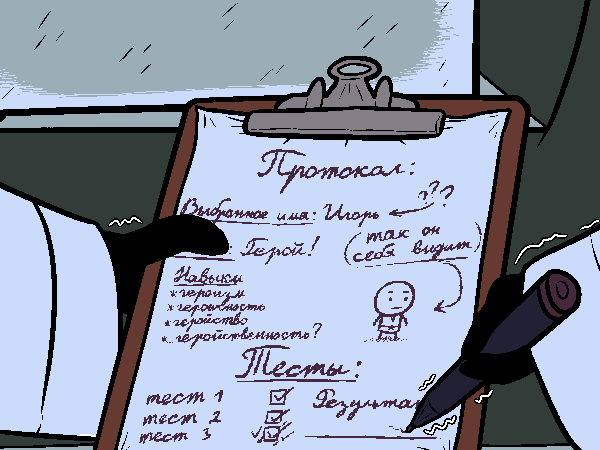 Протокол:
Выбранное имя: Игорь ???
Герой! (так он
себя видит)
Навыки
* героизм
* героичность
* геройство
* геройственность?
Тесты:
тест 1 Результат
тест 2
тест 3